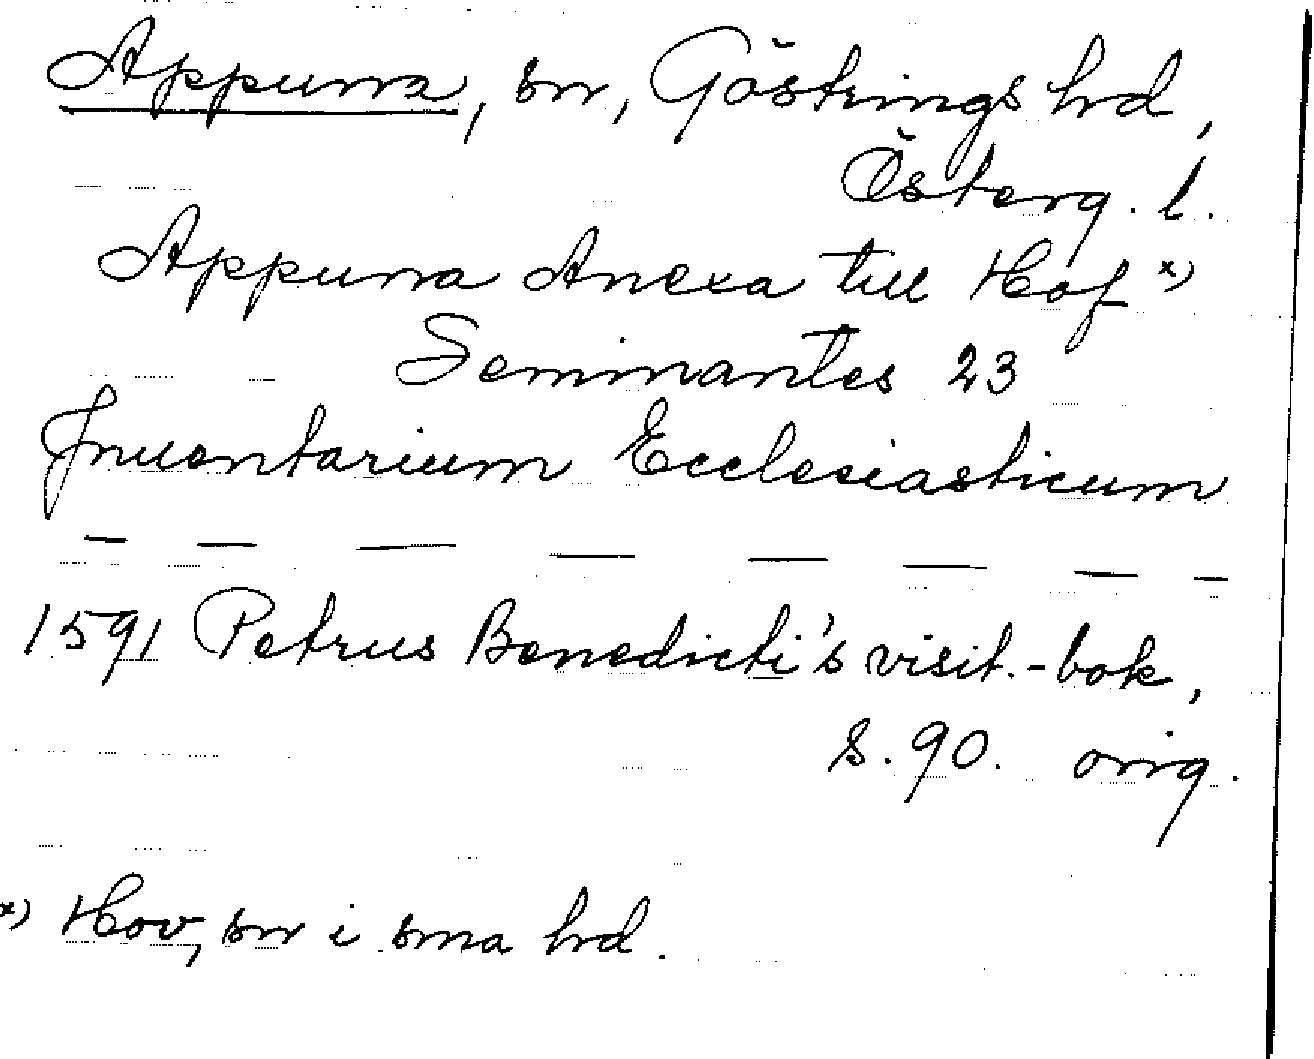 Appuna, sn, Göstrings hrd,
Österg. l.
Appuna Anexa till Hof x)
Seminantes 23
Inuentarium Ecclesiasticum
— — — — — — — —
1591 Petrus Benedicti's visit.-bok,
s. 90. orig.
x) Hov, sn i sma hrd.